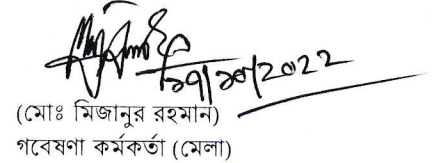 ১৭/১০/২০২২
(মোঃ মিজানুর রহমান)
গবেষণা কর্মকর্তা (মেলা)